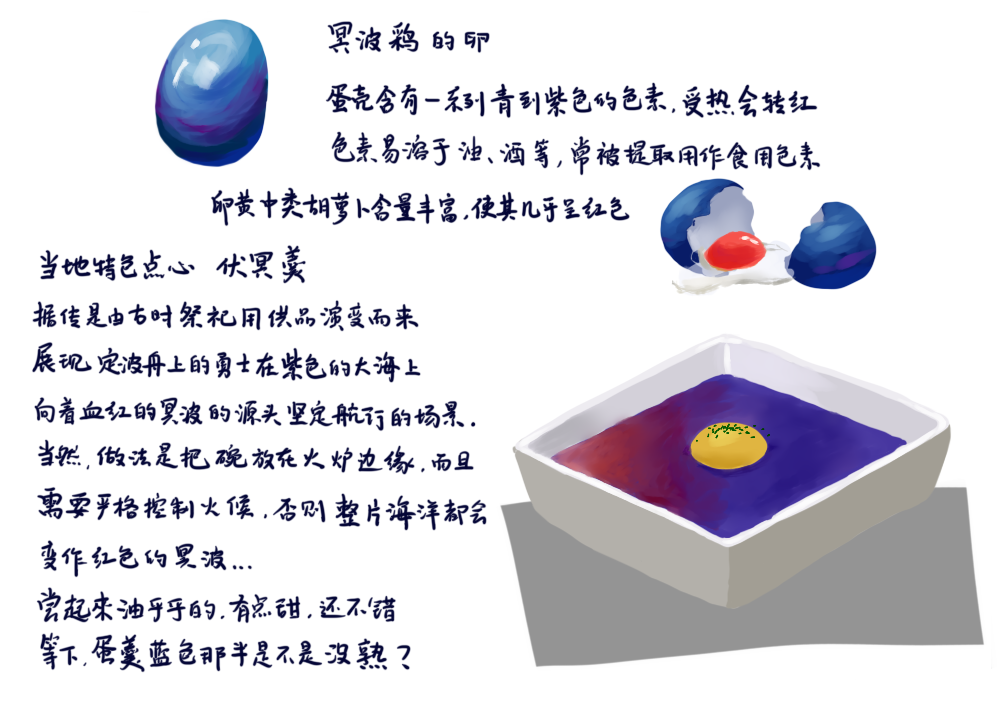 冥波鸡的卵
蛋壳含有一系列青到紫色的色素,受热会转红
色素易溶于油、酒等,常被提取用作食用色素
卵黄中类胡萝卜含量丰富,使其几乎呈红色
当地特色点心 伏冥羹
据传是由古时祭祀用供品演变而来
展现定波舟上的勇士在紫色的大海上
向着血红的冥波的源头坚定航行的场景.
当然,做法是把碗放在火炉边缘,而且
需要严格控制火候,否则整片海洋都会
变作红色的冥波...
尝起来油乎乎的,有点甜,还不错
等下,蛋羹蓝色那半是不是没熟?